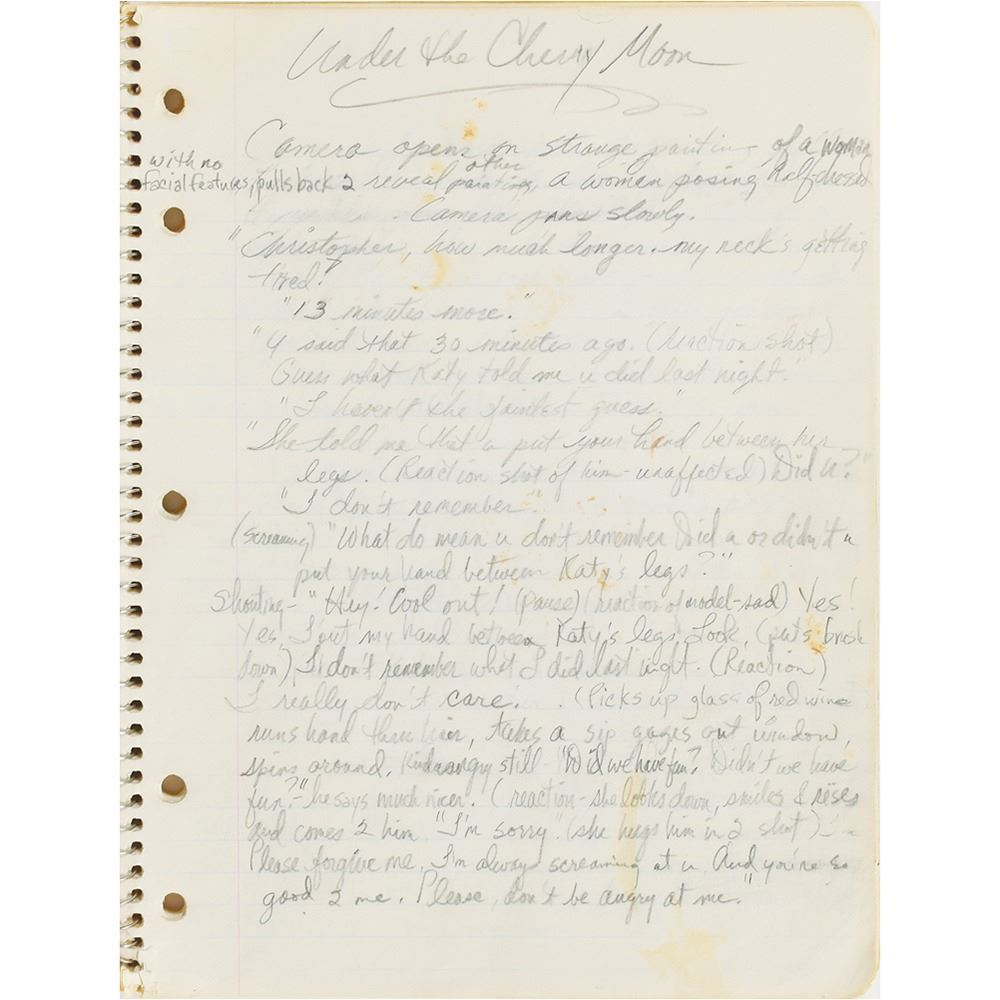 Under the Cherry Moon
Camera opens on strange painting of a woman
with no
facial features, pulls back 2 reveal other painting, a woman posing half-dressed
Camera pans slowly.
"Christopher, how much longer. my neck's getting
tired?
"13 minutes more."
"U said that 30 minutes ago. (reaction shot)
Guess what Katy told me u did last night."
"I haven't the faintest guess."
"She told me that u put your hand between her
legs. (Reaction shot of him - unaffected) Did u?"
"I don't remember."
(screaming) "What do mean u don't remember Did u or didn't u
put your hand between Katy's legs?"
Shouting - "Hey! Cool out! (pause) (reaction of model-sad) Yes!
Yes, I put my hand between Katy's legs. Look, (puts brush
down) I don't remember what I did last night. (Reaction)
I really don't care. (Picks up glass of red wine
runs hand thru hair, takes a sip gazes out window,
spins around. Kinda angry still - "Did we have fun? Didn't we have
fun?" - he says much nicer. (reaction - she looks down, smiles & rises
and comes 2 him. "I'm sorry" (she hugs him in 2 shot)
Please forgive me. I'm always screaming at u. And you're so
good 2 me. Please, don't be angry at me."